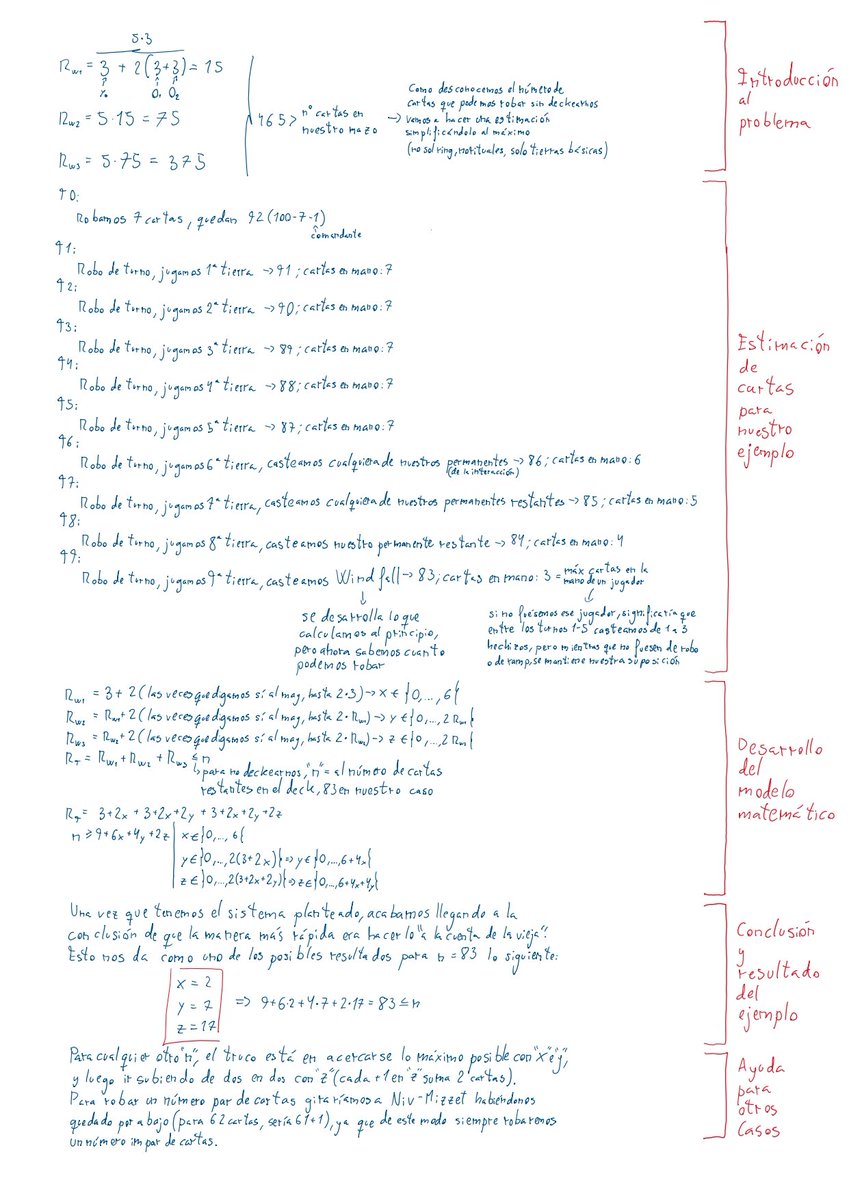 5·3
R_W1 = 3 + 2(3+3) = 15
R. O₁ O₂
R_W2 = 5·15 = 75
R_W3 = 5·75 = 375
465 > nº cartas en nuestro mazo
→ Como desconocemos el número de
cartas que podemos robar sin deckearnos
vamos a hacer una estimación
simplificándolo al máximo
(no sol ring, no rituales, solo tierras básicas)
Introducción
al
problema
T0:
Robamos 7 cartas, quedan 92 (100-7-1)
comandante
T1:
Robo de turno, jugamos 1ª tierra → 91; cartas en mano: 7
T2:
Robo de turno, jugamos 2ª tierra → 90; cartas en mano: 7
T3:
Robo de turno, jugamos 3ª tierra → 89; cartas en mano: 7
T4:
Robo de turno, jugamos 4ª tierra → 88; cartas en mano: 7
T5:
Robo de turno, jugamos 5ª tierra → 87; cartas en mano: 7
T6:
Robo de turno, jugamos 6ª tierra, casteamos cualquiera de nuestros permanentes → 86; cartas en mano: 6
(de la interacción)
T7:
Robo de turno, jugamos 7ª tierra, casteamos cualquiera de nuestros permanentes restantes → 85; cartas en mano: 5
T8:
Robo de turno, jugamos 8ª tierra, casteamos nuestro permanente restante → 84; cartas en mano: 4
T9:
Robo de turno, jugamos 9ª tierra, casteamos Windfall → 83; cartas en mano: 3 = máx cartas en la
mano de un jugador
se desarrolla lo que
calculamos al principio,
pero ahora sabemos cuanto
podemos robar
si no fuésemos ese jugador, significaría que
entre los turnos 1-5 casteamos de 1 a 3
hechizos, pero mientras que no fuesen de robo
o de ramp, se mantiene nuestra suposición
Estimación
de
cartas
para
nuestro
ejemplo
R_W1 = 3 + 2(las veces que digamos sí al may, hasta 2·3) → x ∈ {0,...,6}
R_W2 = R_W1 + 2(las veces que digamos sí al may, hasta 2·R_W1) → y ∈ {0,...,2R_W1}
R_W3 = R_W2 + 2(las veces que digamos sí al may, hasta 2·R_W2) → z ∈ {0,...,2R_W2}
R_T = R_W1 + R_W2 + R_W3 ≤ n
↳ para no deckearnos, "n" = al número de cartas
restantes en el deck, 83 en nuestro caso
R_T = 3+2x + 3+2x+2y + 3+2x+2y+2z
n ≥ 9+6x+4y+2z | x ∈ {0,...,6}
y ∈ {0,...,2(3+2x)} ⇒ y ∈ {0,...,6+4x}
z ∈ {0,...,2(3+2x+2y)} ⇒ z ∈ {0,...,6+4x+4y}
Desarrollo
del
modelo
matemático
Una vez que tenemos el sistema planteado, acabamos llegando a la
conclusión de que la manera más rápida era hacerlo "a la cuenta de la vieja".
Esto nos da como uno de los posibles resultados para n = 83 lo siguiente:
x = 2
y = 7
z = 17
⇒ 9+6·2+4·7+2·17 = 83 ≤ n
Conclusión
y
resultado
del
ejemplo
Para cualquier otro "n", el truco está en acercarse lo máximo posible con "x" e "y",
y luego ir subiendo de dos en dos con "z" (cada +1 en "z" suma 2 cartas).
Para robar un número par de cartas giraríamos a Niv-Mizzet habiéndonos
quedado por abajo (para 62 cartas, sería 61+1), ya que de este modo siempre robaremos
un número impar de cartas.
Ayuda
para
otros
casos